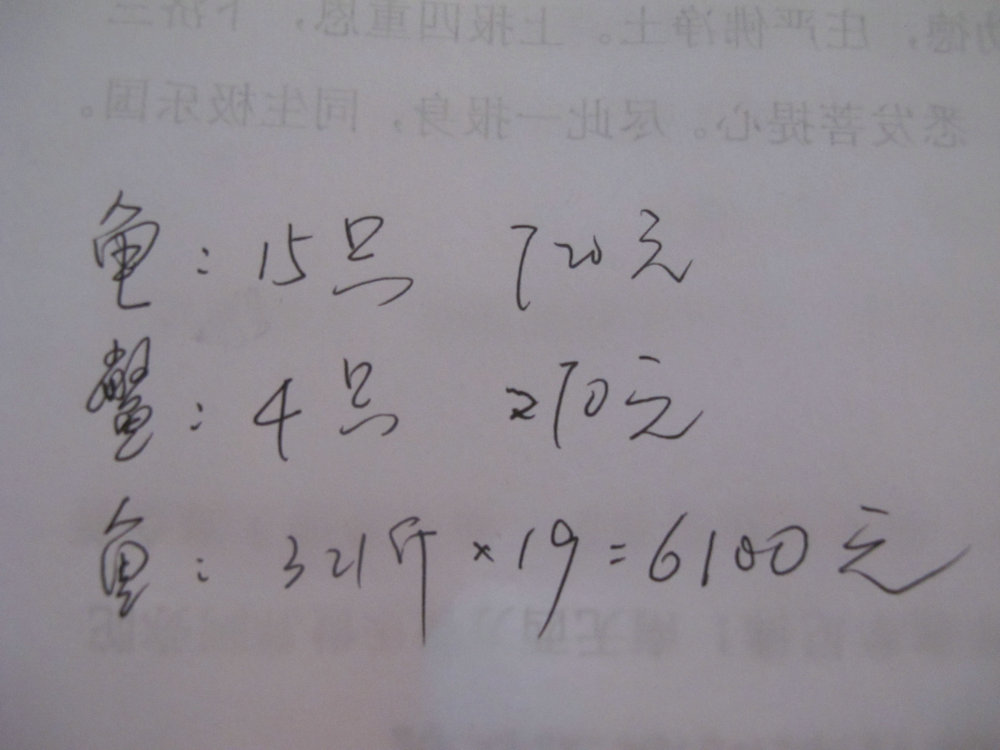 功德，庄严佛净土。上报四重恩，下济三
悉发菩提心。尽此一报身，同生极乐国。
龟：15只 720元
鳖：4只 270元
鱼：321斤×19=6100元